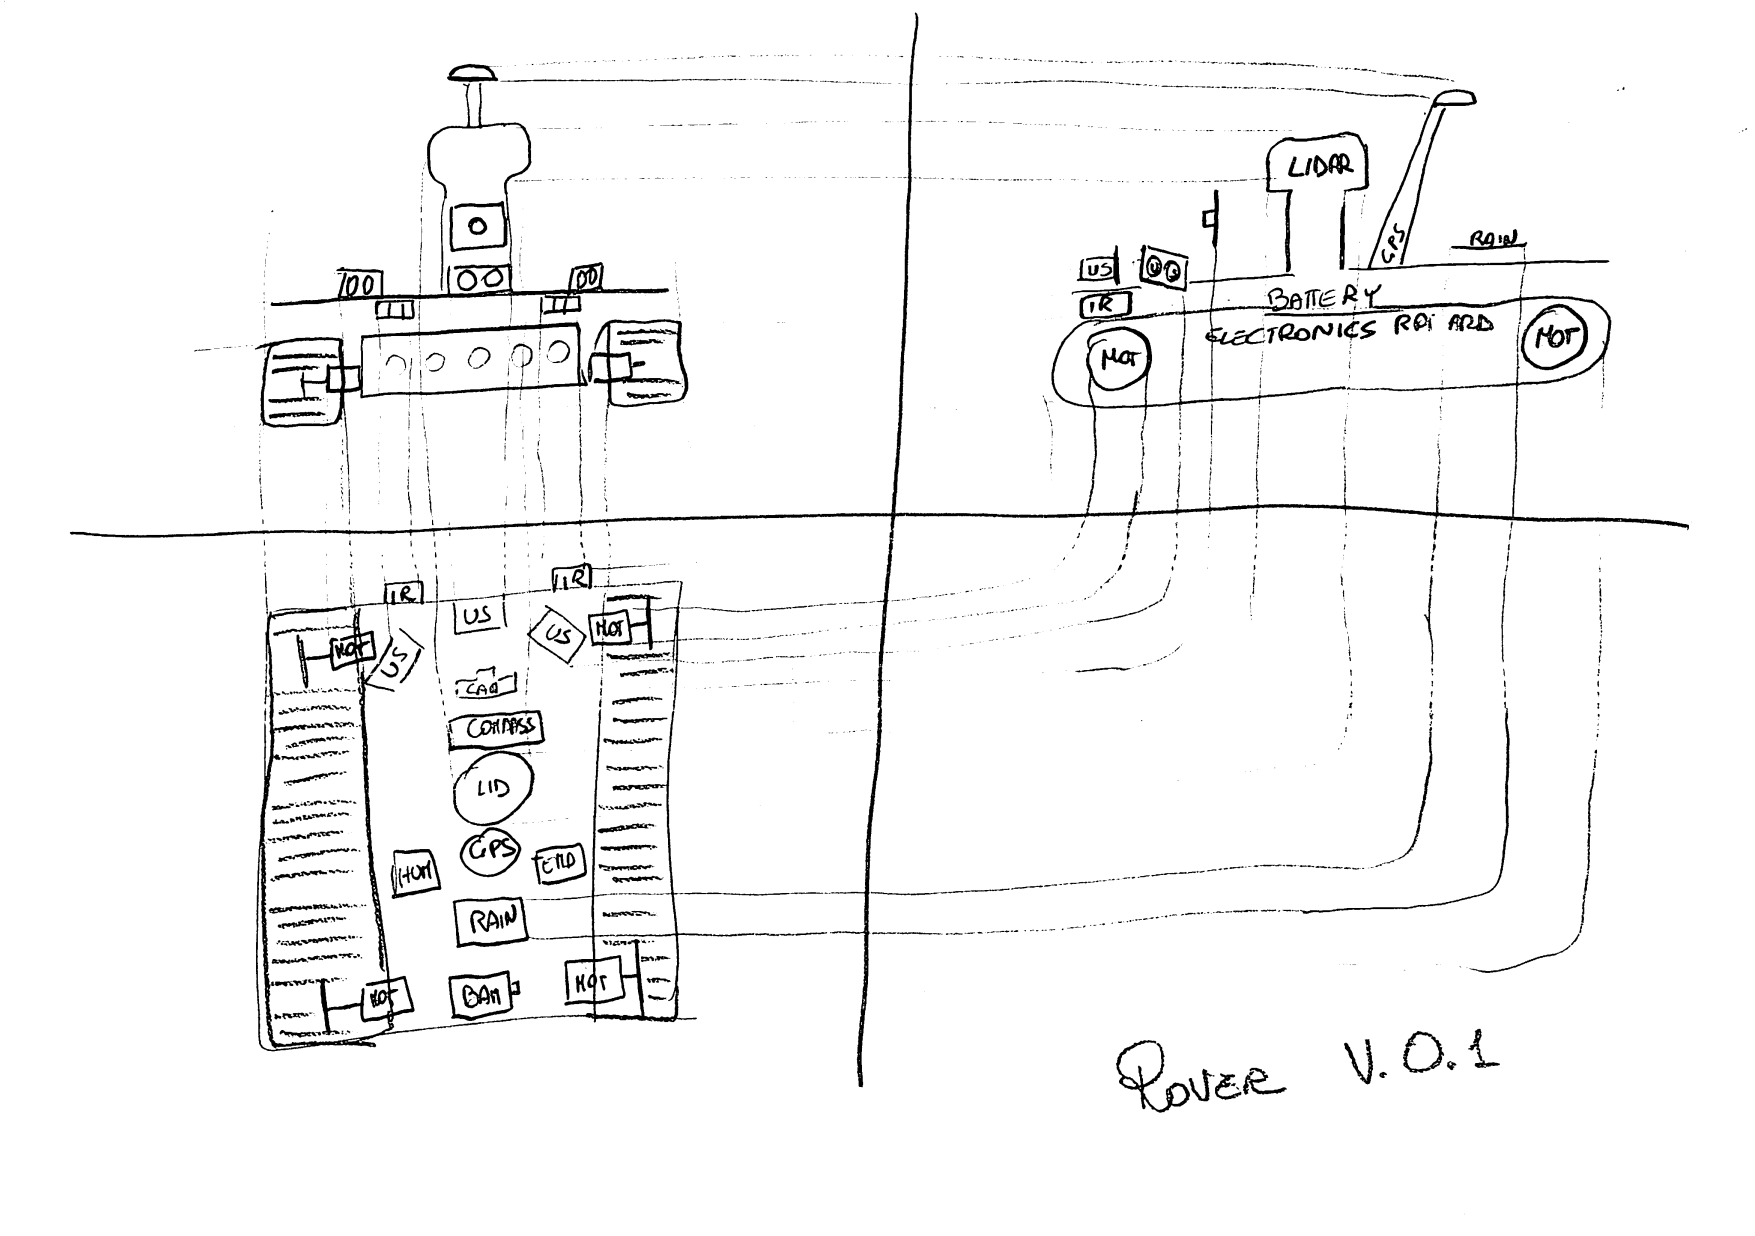 LIDAR
GPS
RAIN
US
IR
BATTERY
ELECTRONICS RPi ARD
MOT
MOT
IR
IR
US
US
MOT
MOT
US
COMPASS
LID
GPS
HUM
RAIN
MOT
MOT
ROVER V.0.1